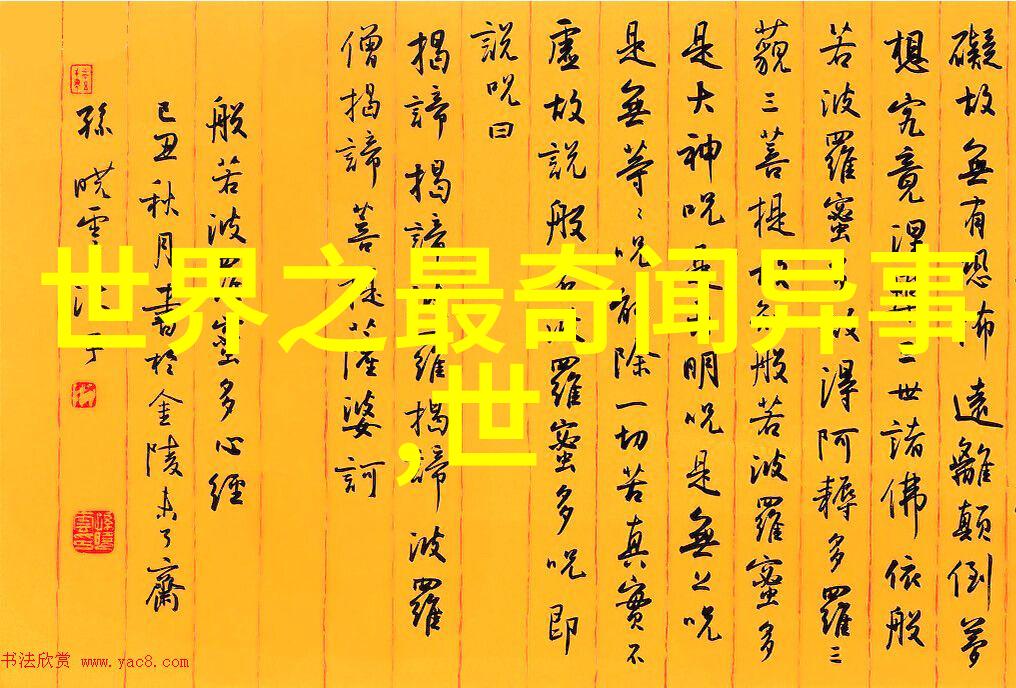 礙故無有恐怖遠離顛倒夢
想究竟涅槃三世諸佛依般
若波羅蜜多故得阿耨多羅三
藐三菩提故知般若波羅蜜多
是大神咒是大明咒是無上咒
是無等〻咒能除一切苦真實不
虛故說般若波羅蜜多咒即
說咒曰
揭諦揭諦波羅揭諦波羅
僧揭諦菩提薩婆訶
般若波羅蜜多心經
己丑秋月書於金陵未了齋
孫晓雲沐手
世界之最奇闻异事
,世
书法欣赏 www.yac8.com